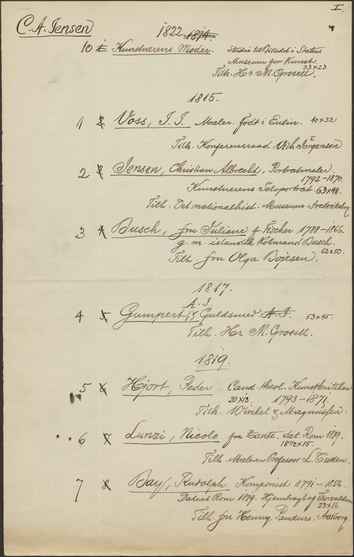 I.
C. A. Jensen 1822 1814
10 Kunstnerens Moder. Studie til Portræt i Statens
Museum for Kunst.
Tilh. Hr. M. Grosell. 23x23
1815.
1 Voss, J. J. Maler. født i Eutin. 40x32
Tilh. Konferensraad Vilh. Jørgensen
2 Jensen, Christian Albrecht, Portrætmaler.
1792-1870.
Kunstnerens Selvportræt 63x48.
Tilh. Det nationalhist. Museum
3 Busch, fru Juliane f. Fischer 1788-1866.
g. m. islandsk Købmand Busch.
62x50.
Tilh. fru Olga Bojesen.
1817.
A. J.
4 Gumpert, Guldsmed A. F. 53x45.
Tilh. Hr. M. Grosell.
1819.
5 Hjort, Peder. Cand. theol. Kunstkritiker
20x13. 1793-1871.
Tilh. Winkel & Magnussen.
6 Lunzi, Nicolo, fra Zante. dat. Rom 1819.
18½x15.
Tilh. Maleren Professor L. Tuxen.
7 Bay, Rudolph, Komponist 1791-1856.
Dateret Rom 1819.
23x16
Tilh. fru Henny Aalborg.